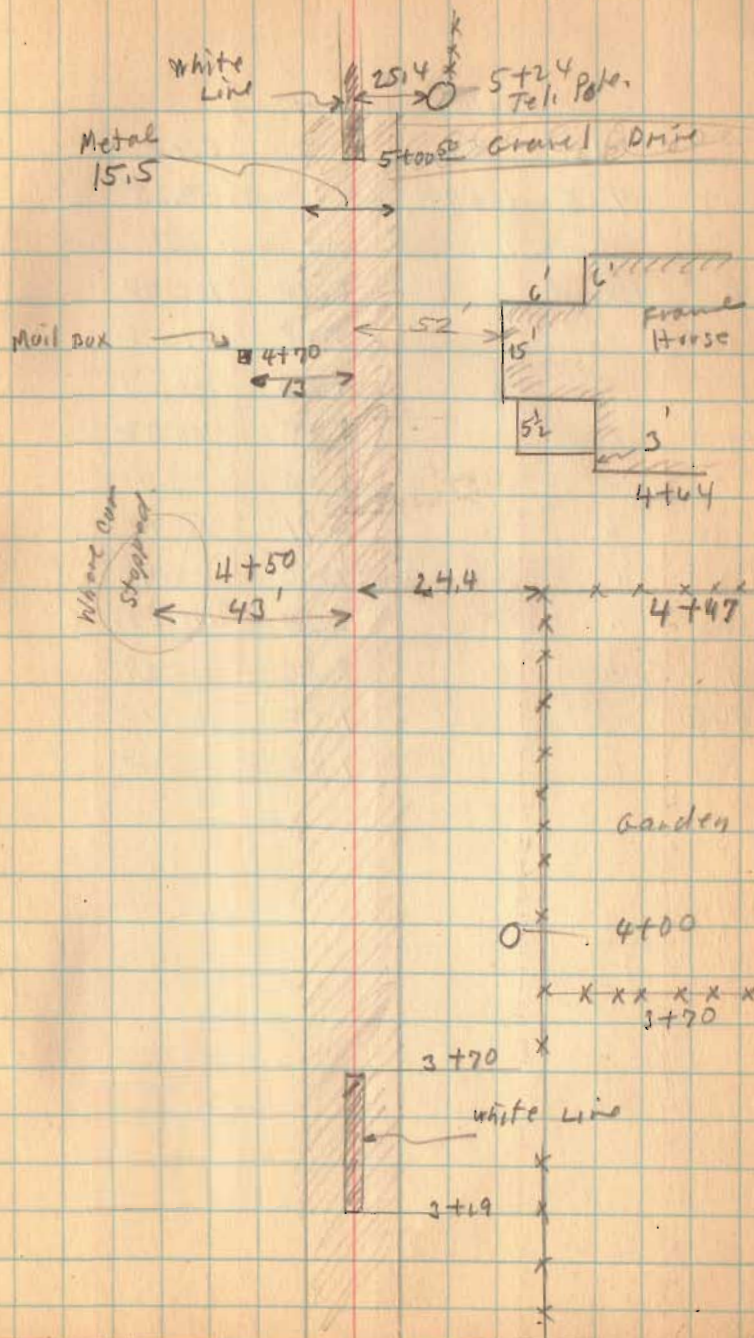 White
Line
25.4
5+24
Tel. Pole.
Metal
15.5
5+00 50
Gravel Drive
6'
6'
52'
Frame
House
Mail Box
4+70
15'
13
5½
3'
4+44
Where Car
Stopped
4+50
43'
24.4
4+47
Garden
4+00
3+70
3+70
White Line
3+19